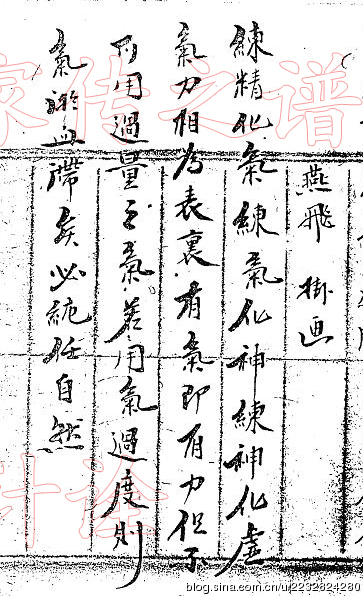 燕飛 掛画
練精化氣練氣化神練神化虛
氣力相為表裏有氣即有力但不
可用過量之氣若用氣過度則
氣血滯矣必純任自然
家传之谱
blog.sina.com.cn/u/2232824280